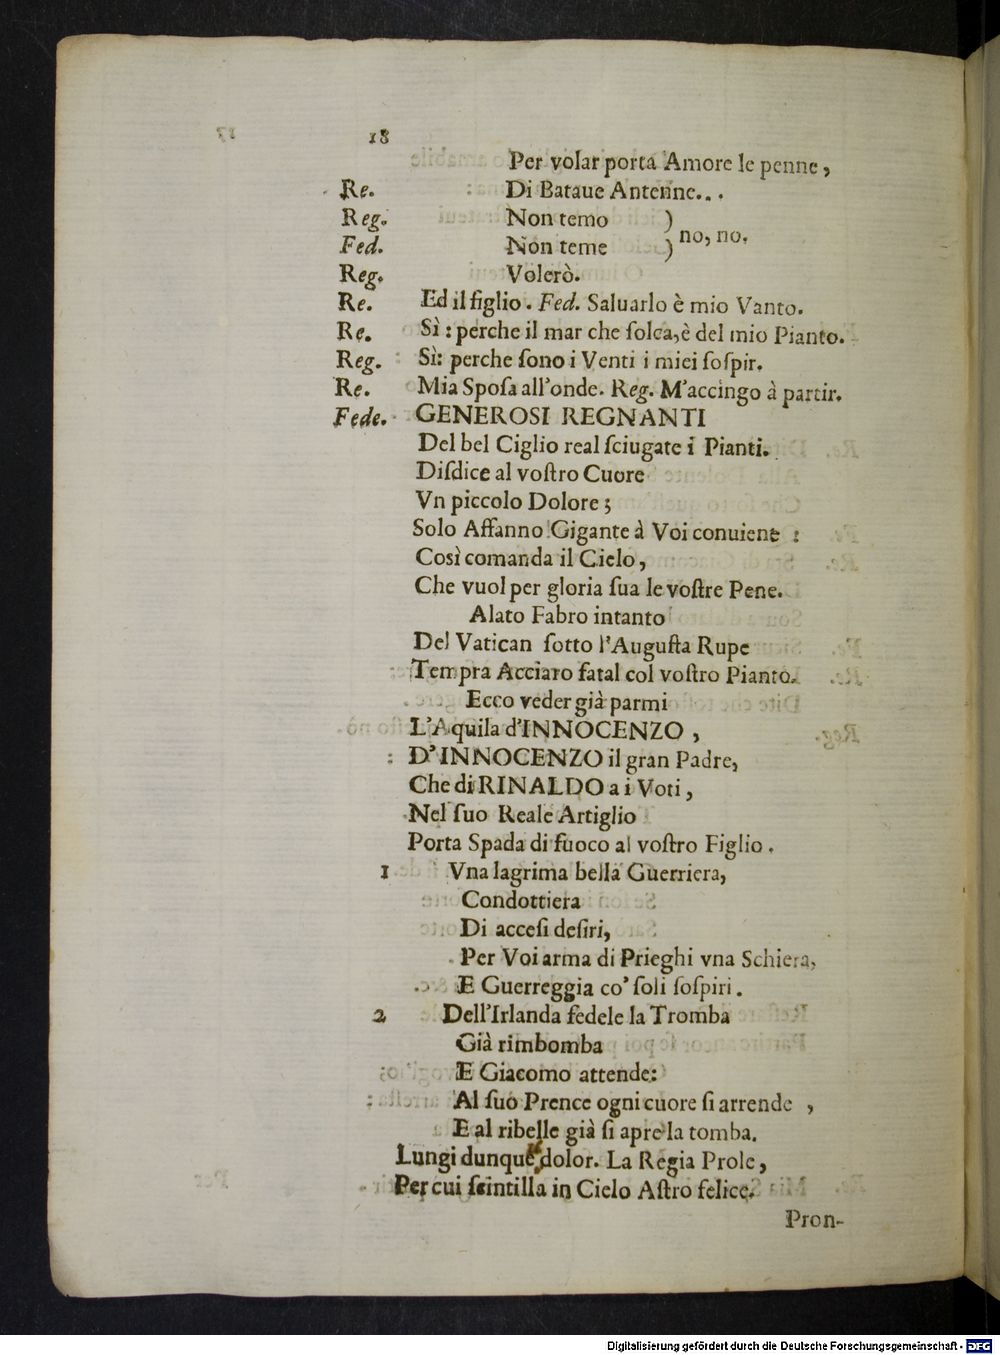 18
Per volar porta Amore le penne,
Re. Di Bataue Antenne...
Reg. Non temo )
Fed. Non teme ) no, no.
Reg. Volerò.
Re. Ed il figlio. Fed. Saluarlo è mio Vanto.
Re. Sì: perche il mar che ſolca, è del mio Pianto.
Reg. Sì: perche ſono i Venti i miei ſoſpir.
Re. Mia Spoſa all'onde. Reg. M'accingo à partir.
Fede. GENEROSI REGNANTI
Del bel Ciglio real ſciugate i Pianti.
Diſdice al voſtro Cuore
Vn piccolo Dolore;
Solo Affanno Gigante à Voi conuiene:
Così comanda il Cielo,
Che vuol per gloria ſua le voſtre Pene.
Alato Fabro intanto
Del Vatican ſotto l'Auguſta Rupe
Tempra Acciaro fatal col voſtro Pianto.
Ecco veder già parmi
L'Aquila d'INNOCENZO,
D'INNOCENZO il gran Padre,
Che di RINALDO a i Voti,
Nel ſuo Reale Artiglio
Porta Spada di fuoco al voſtro Figlio.
1 Vna lagrima bella Guerriera,
Condottiera
Di acceſi deſiri,
Per Voi arma di Prieghi vna Schiera,
E Guerreggia co' ſoli ſoſpiri.
2 Dell'Irlanda fedele la Tromba
Già rimbomba
E Giacomo attende:
Al ſuo Prence ogni cuore ſi arrende,
E al ribelle già ſi apre la tomba.
Lungi dunque dolor. La Regia Prole,
Per cui ſcintilla in Cielo Aſtro felice.
Pron-
Digitalisierung gefördert durch die Deutsche Forschungsgemeinschaft - DFG